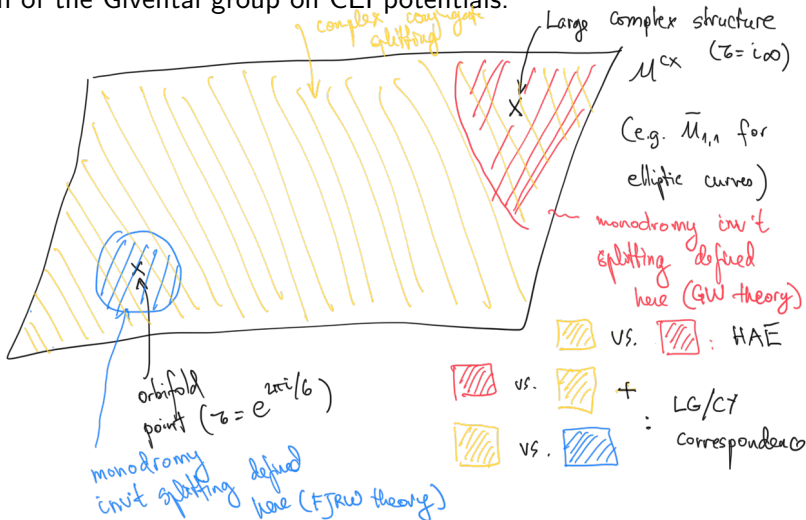 of the Givental group on CEI potentials.
complex conjugate
splitting
Large complex structure
M^{cx} (τ = i∞)
(e.g. M̄_{1,1} for
elliptic curves)
monodromy inv't
splitting defined
here (GW theory)
VS. : HAE
vs. +
: LG/CY
correspondence
vs.
orbifold
point (τ = e^{2πi/6})
monodromy
inv't splitting defined
here (FJRW theory)